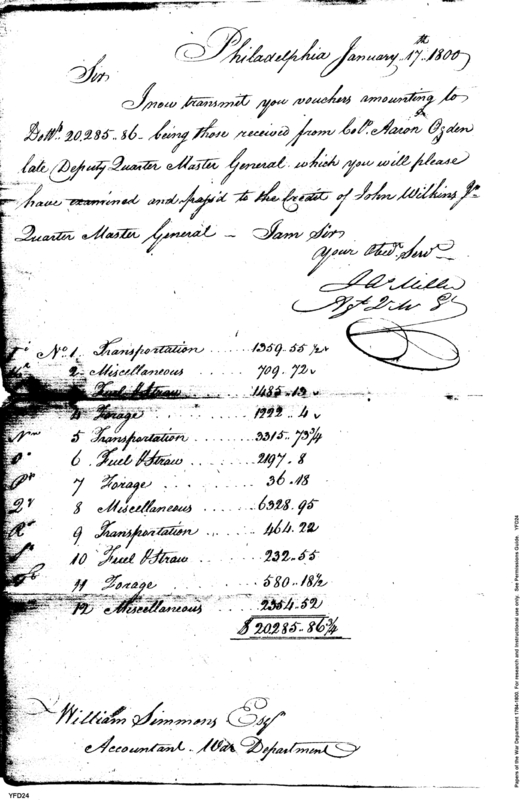 Philadelphia January 17th 1800
Sir
I now transmit you vouchers amounting to
Dolls. 20.285-86- being those received from Col. Aaron Ogden
late Deputy Quarter Master General which you will please
have examined and pass'd to the Credit of John Wilkins Jr.
Quarter Master General — I am Sir
Your Obedt. Servt.
Miller
No. 1 Transportation ..... 1359-55 1/2
2 Miscellaneous ..... 709.72
Fuel & Straw ..... 1485.13
4 Forage ..... 1222..4
5 Transportation ..... 3315..73 3/4
6 Fuel & Straw ..... 2197..8
7 Forage ..... 36.18
8 Miscellaneous ..... 6328.95
9 Transportation ..... 464.22
10 Fuel & Straw ..... 232.55
11 Forage ..... 580-18 1/2
12 Miscellaneous ..... 2354.52
$ 20285-86 3/4
William Simmons Esqr
Accountant War Department
YFD24
Papers of the War Department 1784-1800. For research and instructional use only. See Permissions Guide. YFD24